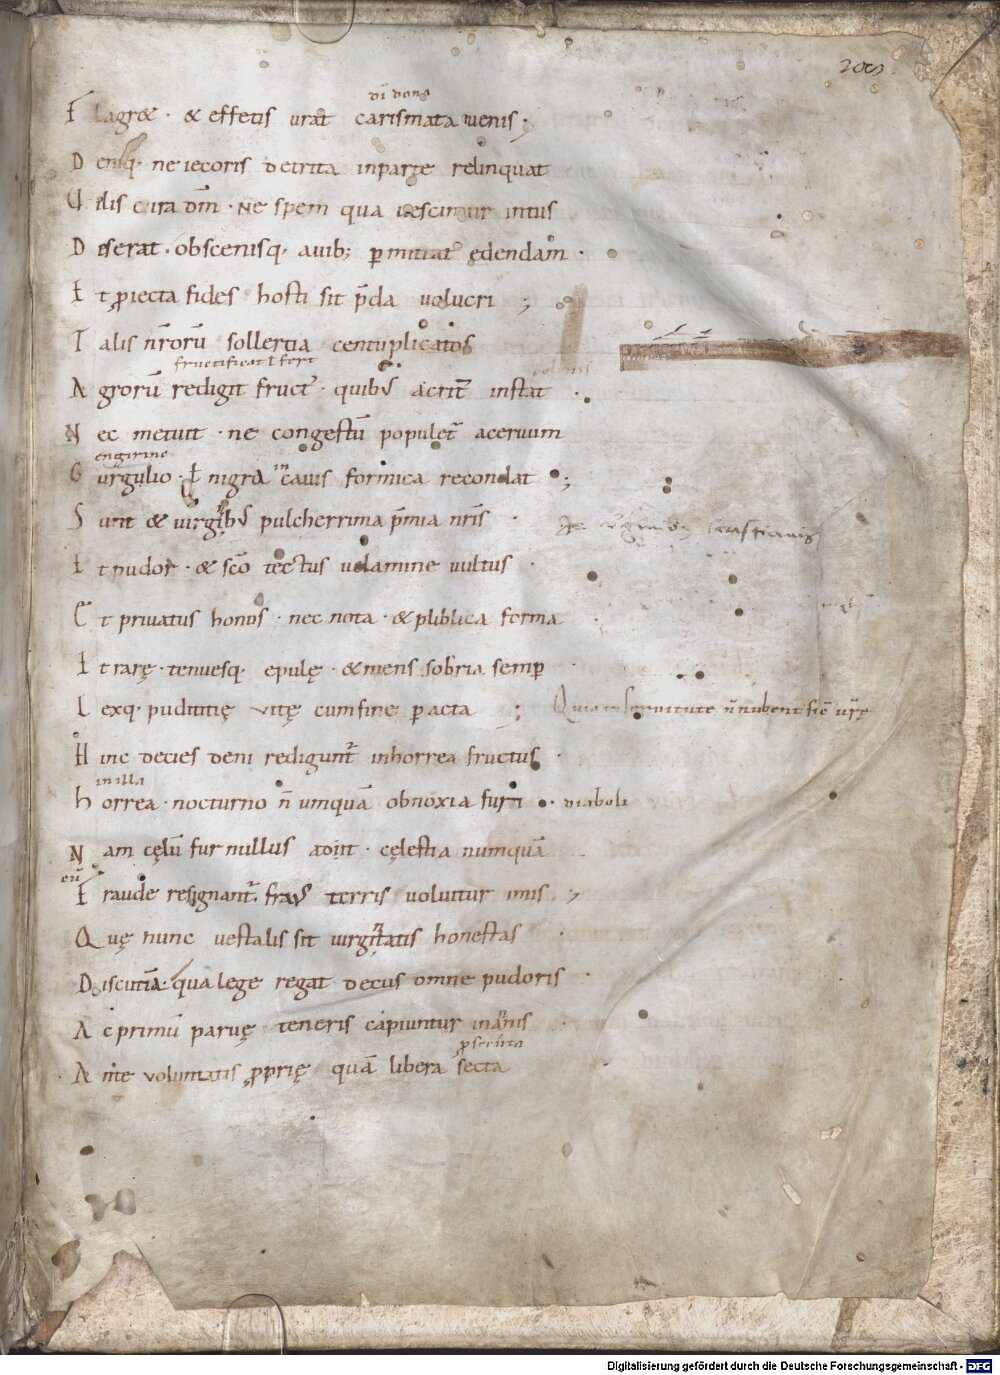 di dons
F lagret · & effetis urat carismata uenis ·
D eniq· ne iecoris detrita inparte relinquat
U ilis cura dn̄i · Ne spem qua uescimur intus
D iserat · obscenisq· auib; ꝑmittat edendam ·
E t ꝓiecta fides hosti sit p̄da uolucri ;
T alis nr̄orū sollertia centuplicatos
fructificat ł fert
A grorū redigit fruct᾽ · quib᾽ acrit᾽ instat ·
N ec metuit · ne congestū populet᾽ aceruum
C urgulio · ł nigra in cauis formica recondat ;
S unt & uirginib᾽ pulcherrima p̄mia nr̄is ·
E t pudor · & sc̄o tectus uelamine uultus ·
E t priuatus honos · nec nota · & publica forma
E t rarę · tenuesq· epulę · & mens sobria semꝑ
L exq· pudicitię vitę cum fine ꝑacta ;
H inc decies deni redigunt᾽ in horrea fructus ·
in illa
h orrea · nocturno n̄ umquā obnoxia furi · diaboli
N am cęlū fur nullus adiit · cęlestia numquā
F raude resignant᾽. fraus terris uoluitur imis ;
Q uę nunc uestalis sit uirginitatis honestas ·
D iscutiā· qua lege regat decus omne pudoris ·
A c primū paruę teneris capiuntur in annis
A nte voluntatis ꝓprię quā libera secta
Digitalisierung gefördert durch die Deutsche Forschungsgemeinschaft - DFG